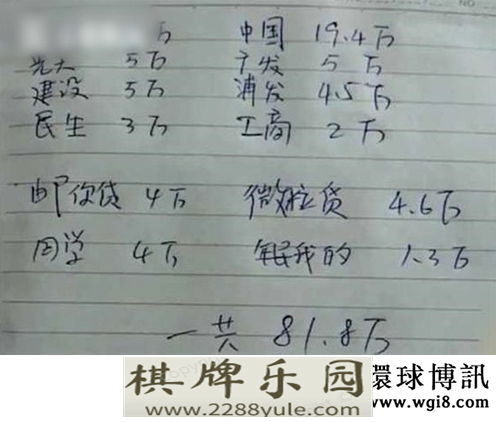 万 中国 19.4万
光大 5万 广发 5万
建设 5万 浦发 4.5万
民生 3万 工商 2万
邮你贷 4万 微粒贷 4.6万
同学 4万 我的 1.3万
一共 81.8万
棋牌乐园 環球博訊
www.2288yule.com www.wgi8.com